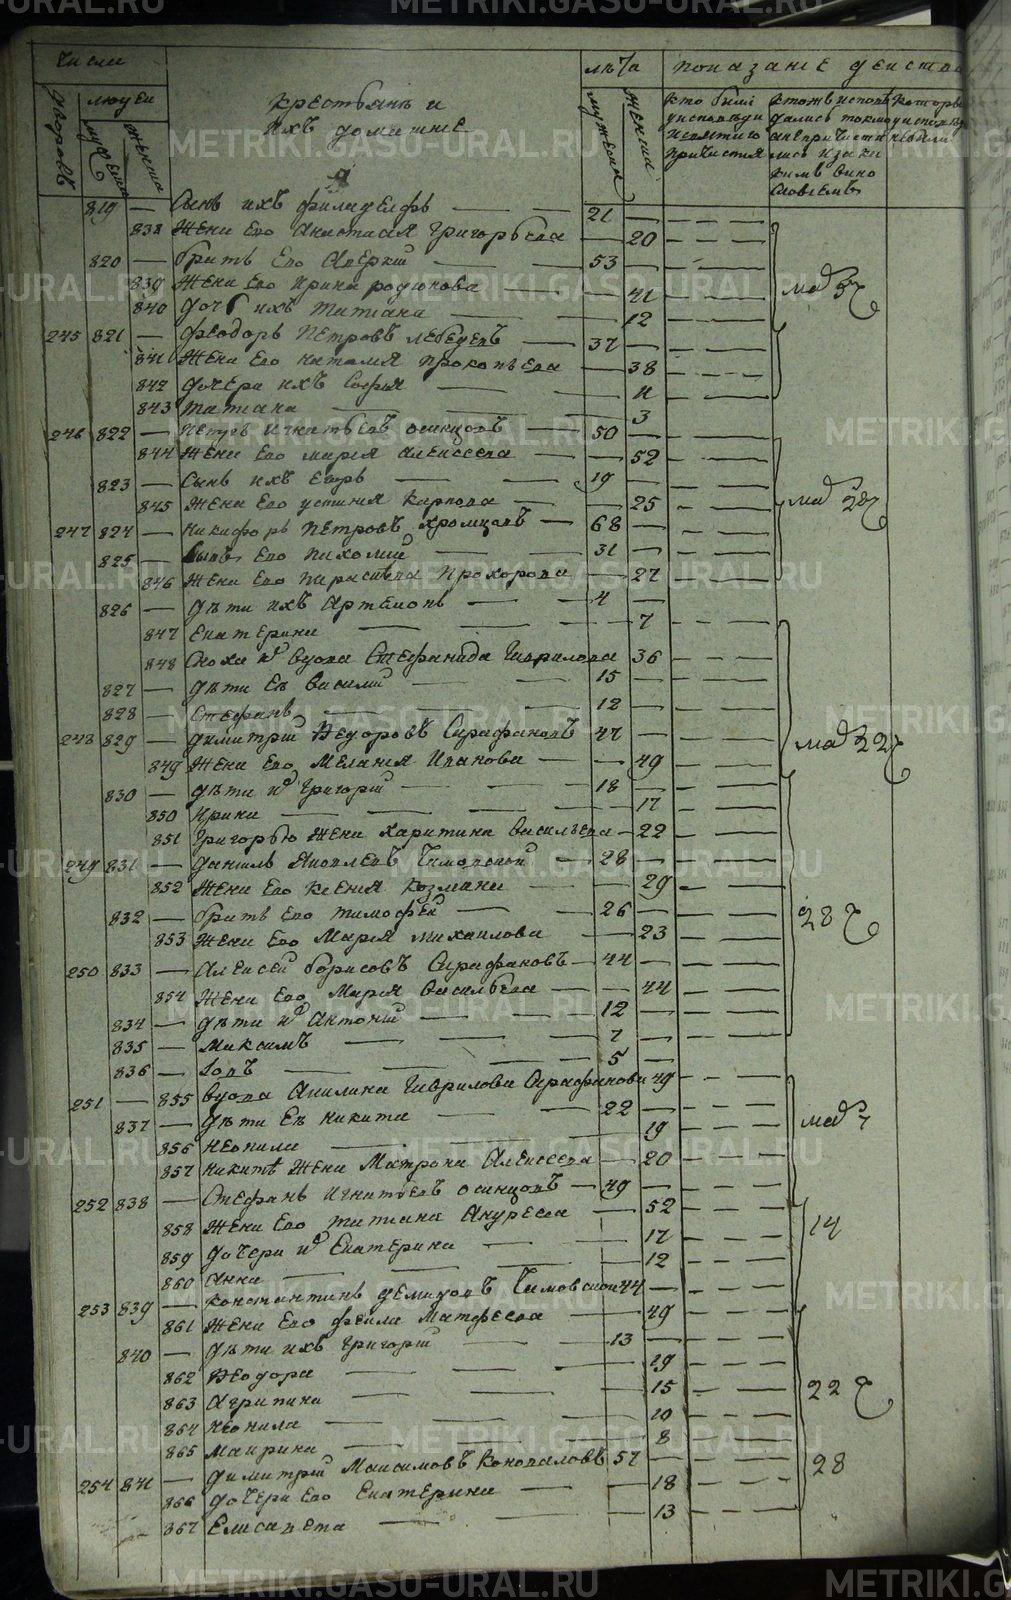 Числа
людей
лѣта
показание действа
дворовъ
мужеска
женска
крестьянъ и
ихъ домашние
мужеска
женска
кто были
у исповѣди
и святаго
причастия
кто же исповѣ
дались токмо
а не причасти
лись и за ка
кимъ вино
словиемъ
819 — Сынъ ихъ Филадельфъ — 21
838 Жена его Анастасия Григорьева — 20
820 — братъ его Аверкий — 53
839 Жена его Ирина Родионова — 41
840 дочь ихъ Татиана — 12
245 821 — Феодоръ Петровъ Лебедевъ — 37
841 Жена его Наталия Прокопьева — 38
842 дочери ихъ София — 11
843 Татиана — 3
246 822 — Петръ Игнатьевъ Осинцовъ — 50
844 Жена его Мария Алексеева — 52
823 — Сынъ ихъ Егоръ — 19
845 Жена его Устиния Карпова — 25
247 824 — Никифоръ Петровъ Хромцовъ — 68
825 — Сынъ его — 31
846 Жена его Параскева Прохорова — 27
826 — дѣти ихъ Артемонъ — 4
847 Екатерина — 7
848 Сноха и вдова Стефанида Гаврилова 36
827 — дѣти ея Василий — 15
828 — Стефанъ — 12
248 829 — Димитрий Федоровъ Сарафановъ 47
849 Жена его Мелания Иванова — 49
830 — дѣти и Григорий — 18
850 Ирина — 17
851 Григорью жена Харитина Васильева — 22
249 831 — Даниилъ Яковлевъ — 28
852 Жена его Ксения Козмина — 29
832 — братъ его Тимофей — 26
853 Жена его Мария Михайлова — 23
250 833 — Алексей Борисовъ Сарафановъ — 44
854 Жена его Мария Васильева — 44
834 — дѣти и Антоний — 12
835 — Максимъ — 7
836 — Иовъ — 5
251 — 855 Вдова Акилина Гаврилова Сарафанова 49
837 — дѣти ея Никита — 22
856 Неонила — 19
857 Никитѣ жена Матрона Алексеева — 20
252 838 — Стефанъ Игнатьевъ Осинцовъ — 49
858 Жена его Татиана Андреева — 52
859 дочери и Екатерина — 17
860 Анна — 12
253 839 — Константинъ Демидовъ 44
861 Жена его Фекла Матфеева — 49
840 — дѣти ихъ Григорий — 13
862 Феодора — 19
863 Агрипина — 15
864 Неонила — 10
865 Маврина — 8
254 841 — Димитрий Максимовъ Коноваловъ 57
866 дочери его Екатерина — 18
867 Елисавета — 13
28
14
22
28
METRIKI.GASO-URAL.RU